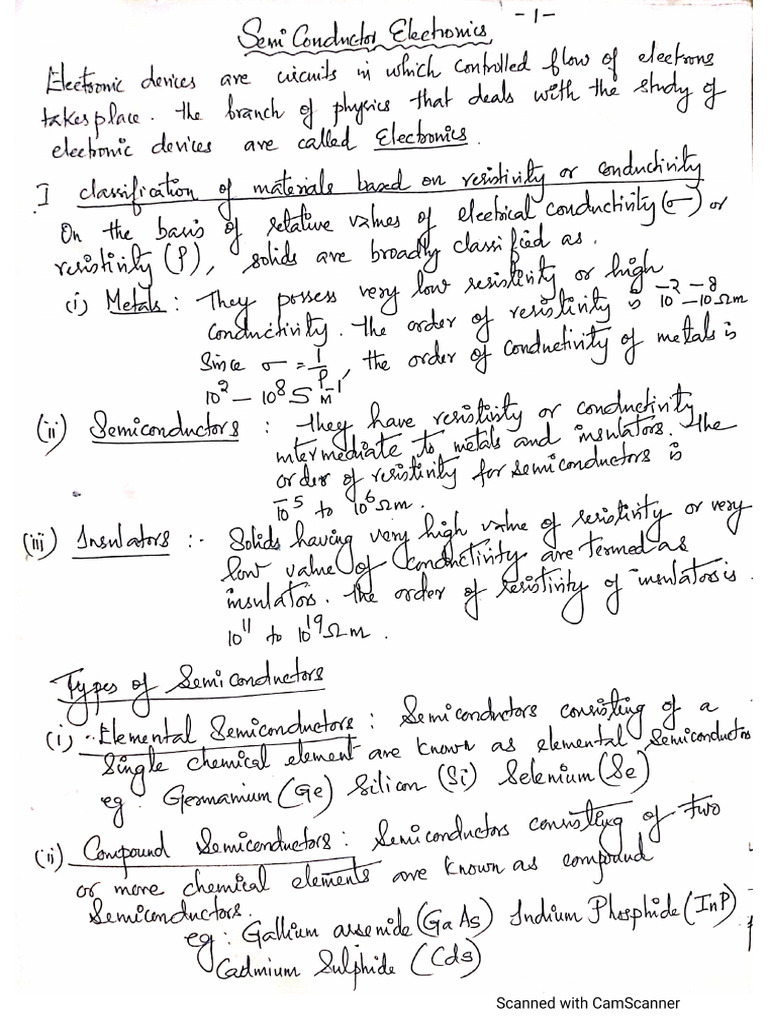 -1-
Semi Conductor Electronics
Electronic devices are circuits in which controlled flow of electrons
takes place. The branch of physics that deals with the study of
electronic devices are called Electronics.
I Classification of materials based on resistivity or conductivity
On the basis of relative values of electrical conductivity (σ) or
resistivity (ρ), solids are broadly classified as.
(i) Metals : They possess very low resistivity or high
conductivity. The order of resistivity is 10⁻² – 10⁻⁸ Ωm
Since σ = 1/ρ, the order of conductivity of metals is
10² – 10⁸ S m⁻¹
(ii) Semiconductors : They have resistivity or conductivity
intermediate to metals and insulators. The
order of resistivity for semiconductors is
10⁻⁵ to 10⁶ Ωm.
(iii) Insulators :- Solids having very high value of resistivity or very
low value of conductivity are termed as
insulators. The order of resistivity of insulators is
10¹¹ to 10¹⁹ Ωm.
Types of Semiconductors
(i) Elemental Semiconductors : Semiconductors consisting of a
Single chemical element are known as elemental semiconductors
eg: Germanium (Ge) Silicon (Si) Selenium (Se)
(ii) Compound Semiconductors : Semiconductors consisting of two
or more chemical elements are known as compound
Semiconductors.
eg: Gallium arsenide (GaAs) Indium Phosphide (InP)
Cadmium Sulphide (Cds)
Scanned with CamScanner